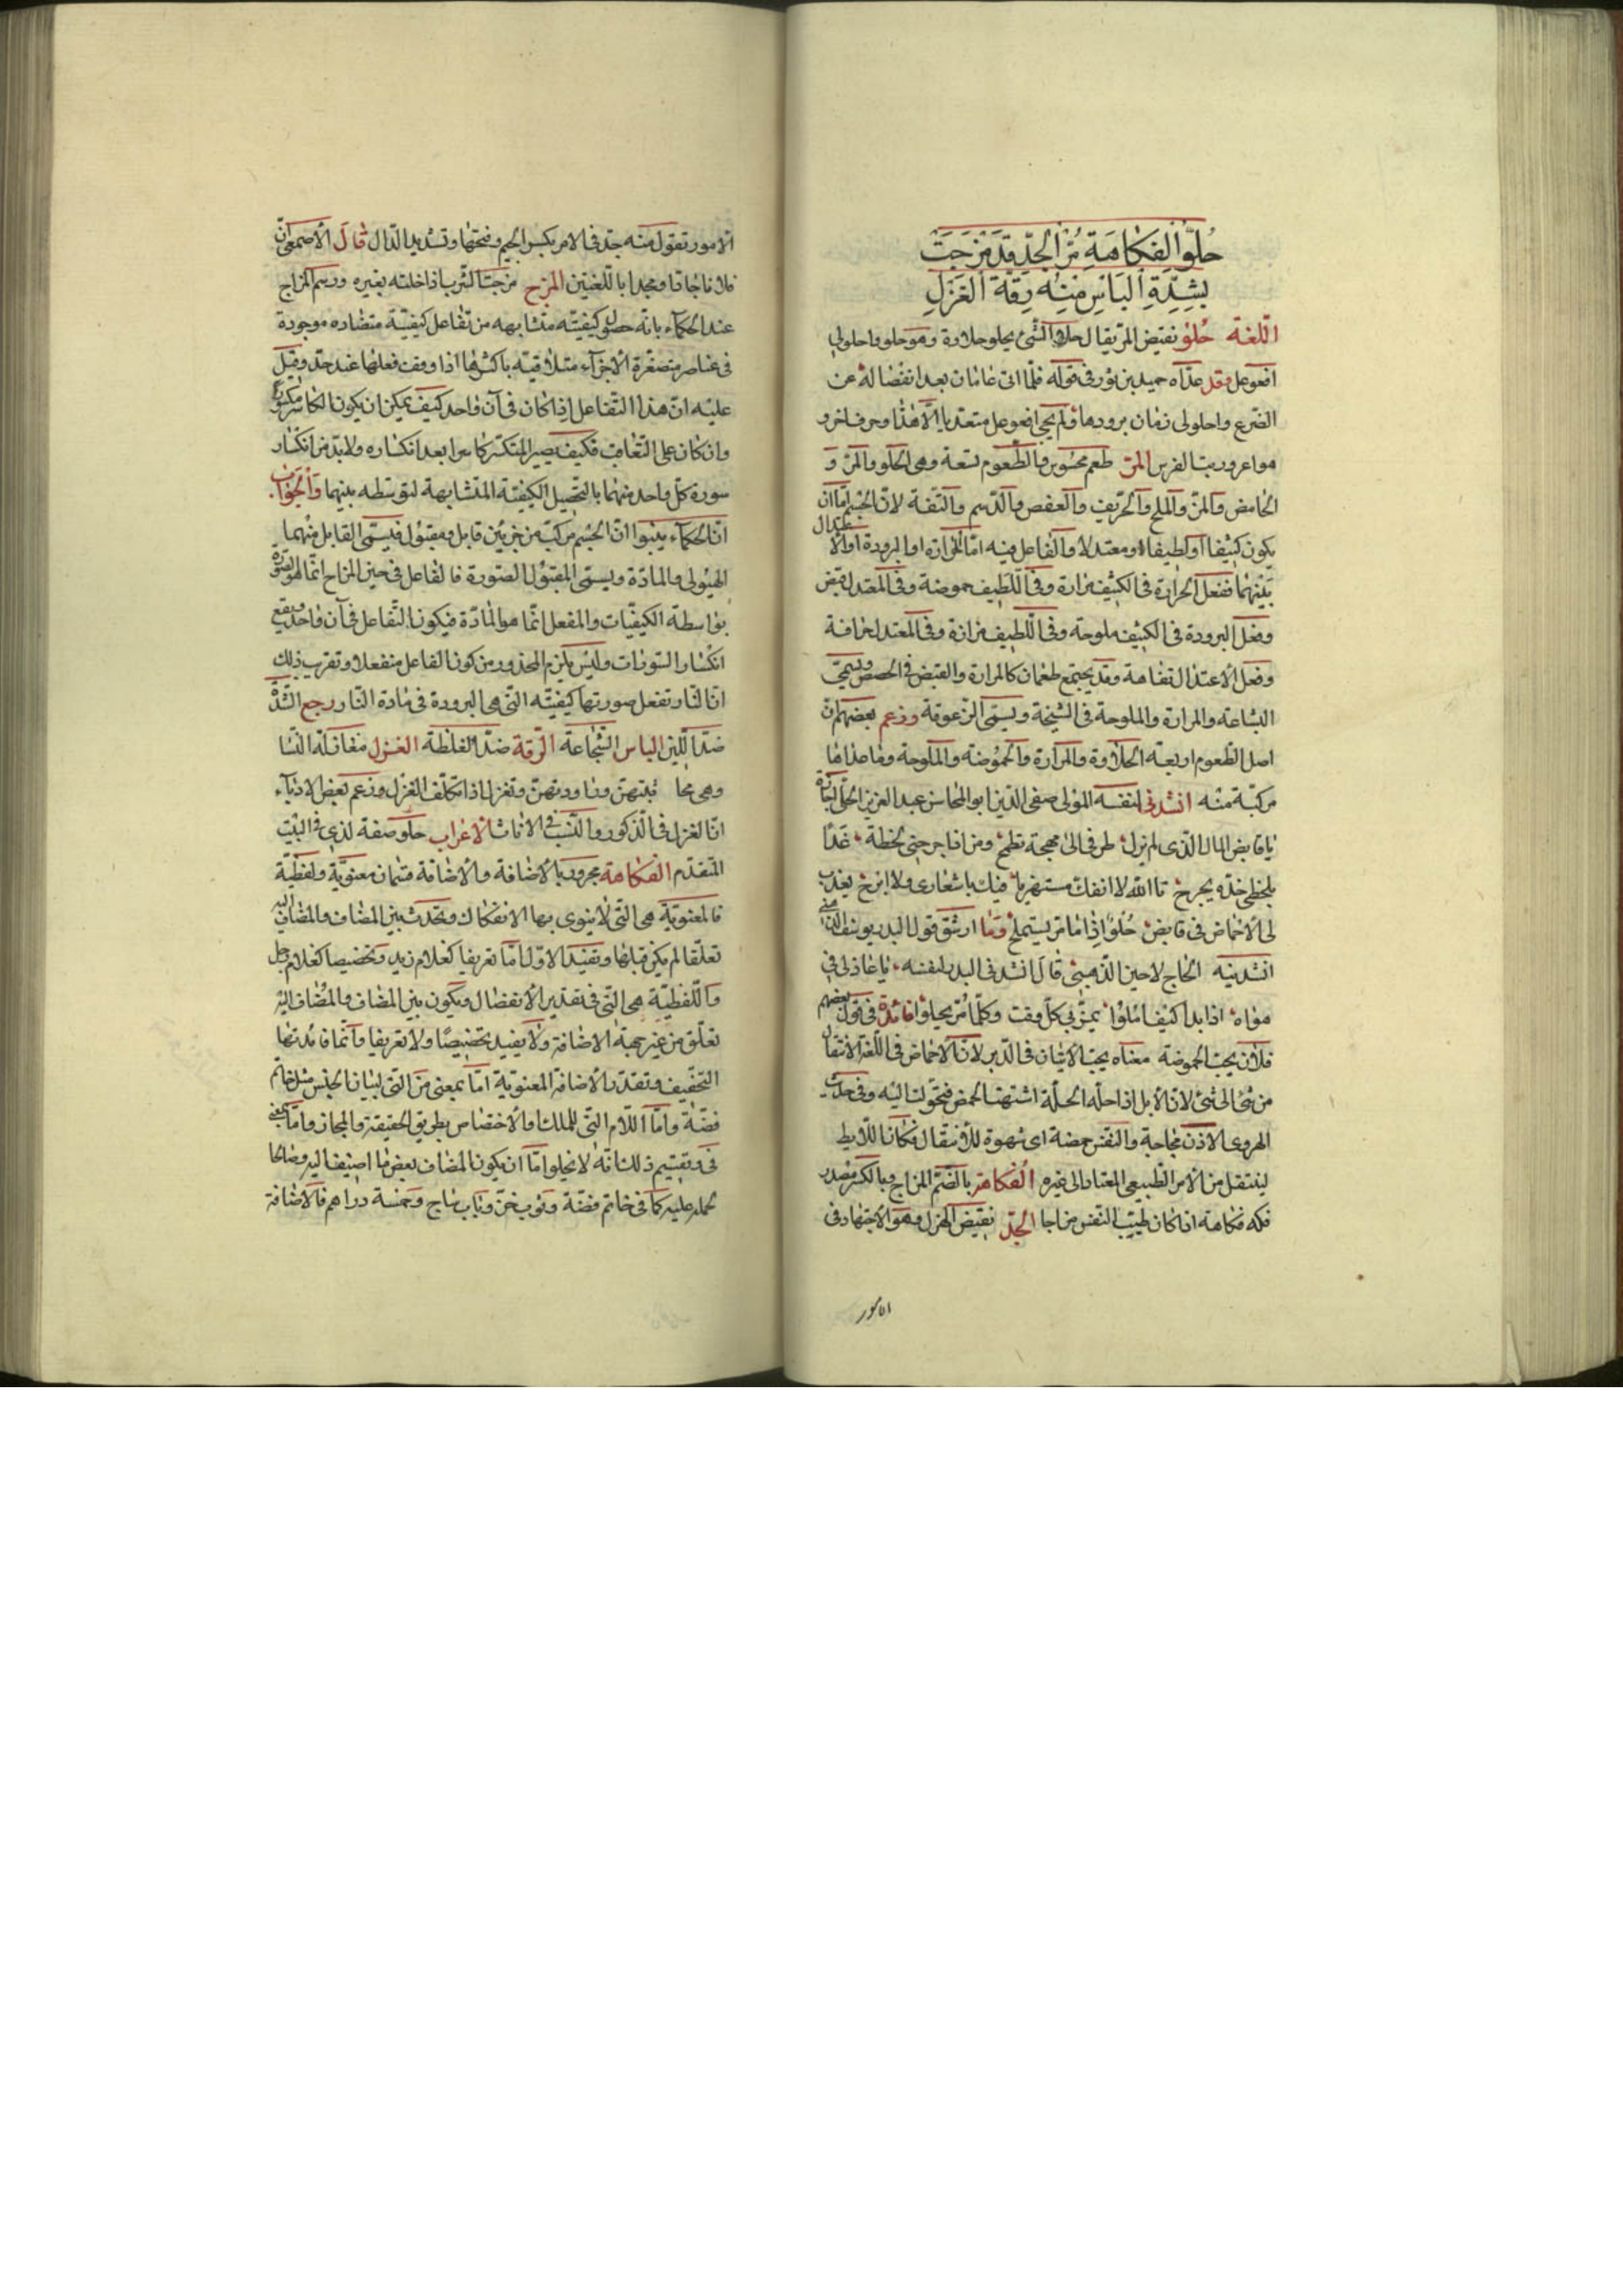 حُلْوُ الفُكَاهَةِ مُرُّ الجِدِّ قَدْ مُزِجَتْ
بِشِدَّةِ البَأسِ مِنْهُ رِقَّةُ الغَزَلِ
اللّغة حُلو نقيض المرّ يقال حلا الشئ يحلو حلاوة وهو حلو واحلولى
افعوعل وقد عدّاه حميد بن ثور فى قوله فلمّا اتى عامان بعد انفصاله عن
الضرع واحلولى دماث يرودها ولم يجئ افعوعل متعديا الّا هذا وحرف اخر و
هو اعروريت الفرس المرّ طعم محسوس والطعوم تسعة وهى الحلو والمرّ و
الحامض والمزّ والملح والحريف والعفص والدّسم والتّفة لانّ الجسم امّا ان
يكون كثيفا او لطيفا او معتدلا والفاعل فيه امّا الحرارة او البرودة او الاعتدال
بينهما ففعل الحرارة فى الكثيف مرارة وفى اللّطيف حموضة وفى المعتدل
وفعل البرودة فى الكثيف ملوحة وفى اللّطيف مرارة وفى المعتدل
وفعل الاعتدال تفاهة وقد يجتمع طعمان كالمرارة والقبض فى الحضض ويسمّى
البشاعة والمرارة والملوحة فى الشيخة ويسمّى الزعوقة وزعم بعضهم انّ
اصل الطّعوم اربعة الحلاوة والمرارة والحموضة والملوحة وما عداها
مركّبة منه انشدنى لنفسه المولى صفى الدّين ابو المحاسن عبد العزيز الحلّى
يا قابض المال الذى لم يزل طرفى الى مهجته تطمح ومن اذا جرحنى لحظه غدا
بلحظى خدّه يجرح تا الله لا انفكّ
لى الاحماض فى قابض حُلوٌ اذا ما مرّ يستملح وما ارشق قول البدر يوسف
انشدنيه الحاج لاجين الذّهبىّ قال انشدنى البدر لنفسه يا عاذلى فى
هواه اذا بدا كيف اسلوا يمرّ بى كلّ وقت وكلّما مرّ يحلوا فائدة فى قول بعضهم
فلان يحبّ الحموضة معناه يحبّ الاتيان فى الدّبر لانّ الاحماض فى اللّغة الانتقال
من شئ الى شئ لانّ الابل اذا الخلّة اشتهت الحمض فتحوّلت اليه وفى حديث
الهروى الاذن مجّاجة والنفس حمضة اى شهوة فكانّ اللّايط
ينتقل من الامر الطبيعى المعتاد الى غيره الفكاهة بالضّمّ المزاح وبالكسر مصدر
فكه فكاهة اذا كان طيّب النفس مزاحا الجدّ نقيض الهزل وهو الاجتهاد فى
الامور
الامور تقول منه جدّ فى الامر بكسر الجيم وفتحها وتشديد الدّال قال الاصمعى انّ
فلانا جادّ ومجدّ باللّغتين المزج مزجت الشراب اذا خلته بغيره ورسم المزاج
عند الحكماء بانّه حصول كيفيّته متشابهه من تفاعل كيفيّة متضاده موجودة
فى عناصر متصغرة الاجزاء متلاقيه باكثرها اذا وقف فعلها عند حدّ وقيل
عليه انّ هذا التّفاعل اذا كان فى آن واحد كيف يمكن ان يكون الكاسر مكسورا
وان كان على التّعاقب فكيف يصير المنكسر كاسرا بعد انكساره ولا بدّ من انكسار
سورة كلّ واحد منهما بالتحصيل الكيفيّة المتشابهة لتوسّطه بينهما والجواب
انّ الحكماء انّ الجسم مركّب من جزئين قابل ومقبول فيسمّى القابل منهما
الهيولى والمادّة ويسمّى المقبول الصّورة فالفاعل فى حين المزاح انّما هو الصّورة
بواسطة الكيفيّات والمنفعل انّما هو المادّة فيكون التّفاعل فى آن واحد ويقع
انكسار السّورات وليس يلزم المحذور من كون الفاعل منفعلا وتقرب ذلك
انّ النّار تفعل صورتها كيفيّته التّى هى البرودة فى مادة النّار رجع الشّدّة
ضدّ اللّين الباس الشّجاعة الرّقة ضدّ الغلظة الغزل مغازلة النّسا
وهى محا دثتهنّ ومراودتهنّ وتغزل اذا تكلّف الغزل وزعم بعض الادباء
انّ الغزل فى الذّكور والنّسب فى الاناث الاعراب حلو صفة لذى فى البيت
المتقدّم الفكاهة مجرور بالاضافة والاضافة قسمان معنويّة ولفظيّة
فالمعنويّة هى التّى لا ينوى بها الانفكاك وتحدث بين المضاف والمضاف اليه
تعلّقا لم يكن قبلها وتفيد الاوّل امّا تعريفا كغلام زيد وتخصيصا كغلام رجل
واللّفظيّة هى التّى فى تقدير الانفصال ويكون بين المضاف والمضاف اليه
تعلّق من غير جهة الاضافة ولا يفيد تخصيصًا ولا تعريفا وانّما فائدتها
التخفيف وتقدّر الاضافة المعنويّة امّا بمعنى من التّى لبيان الجنس مثل خاتم
فضّة وامّا اللّام التّى للملك والاختصاص بطريق الحقيقة والمجاز وامّا بمعنى
فى وتقسيم ذلك انّه لا يخلو امّا ان يكون المضاف بعض ما اضيف اليه وصالحا
لحمله عليه كما فى خاتم فضّة وثوب خزّ وباب ساج وخمسة دراهم فالاضافة